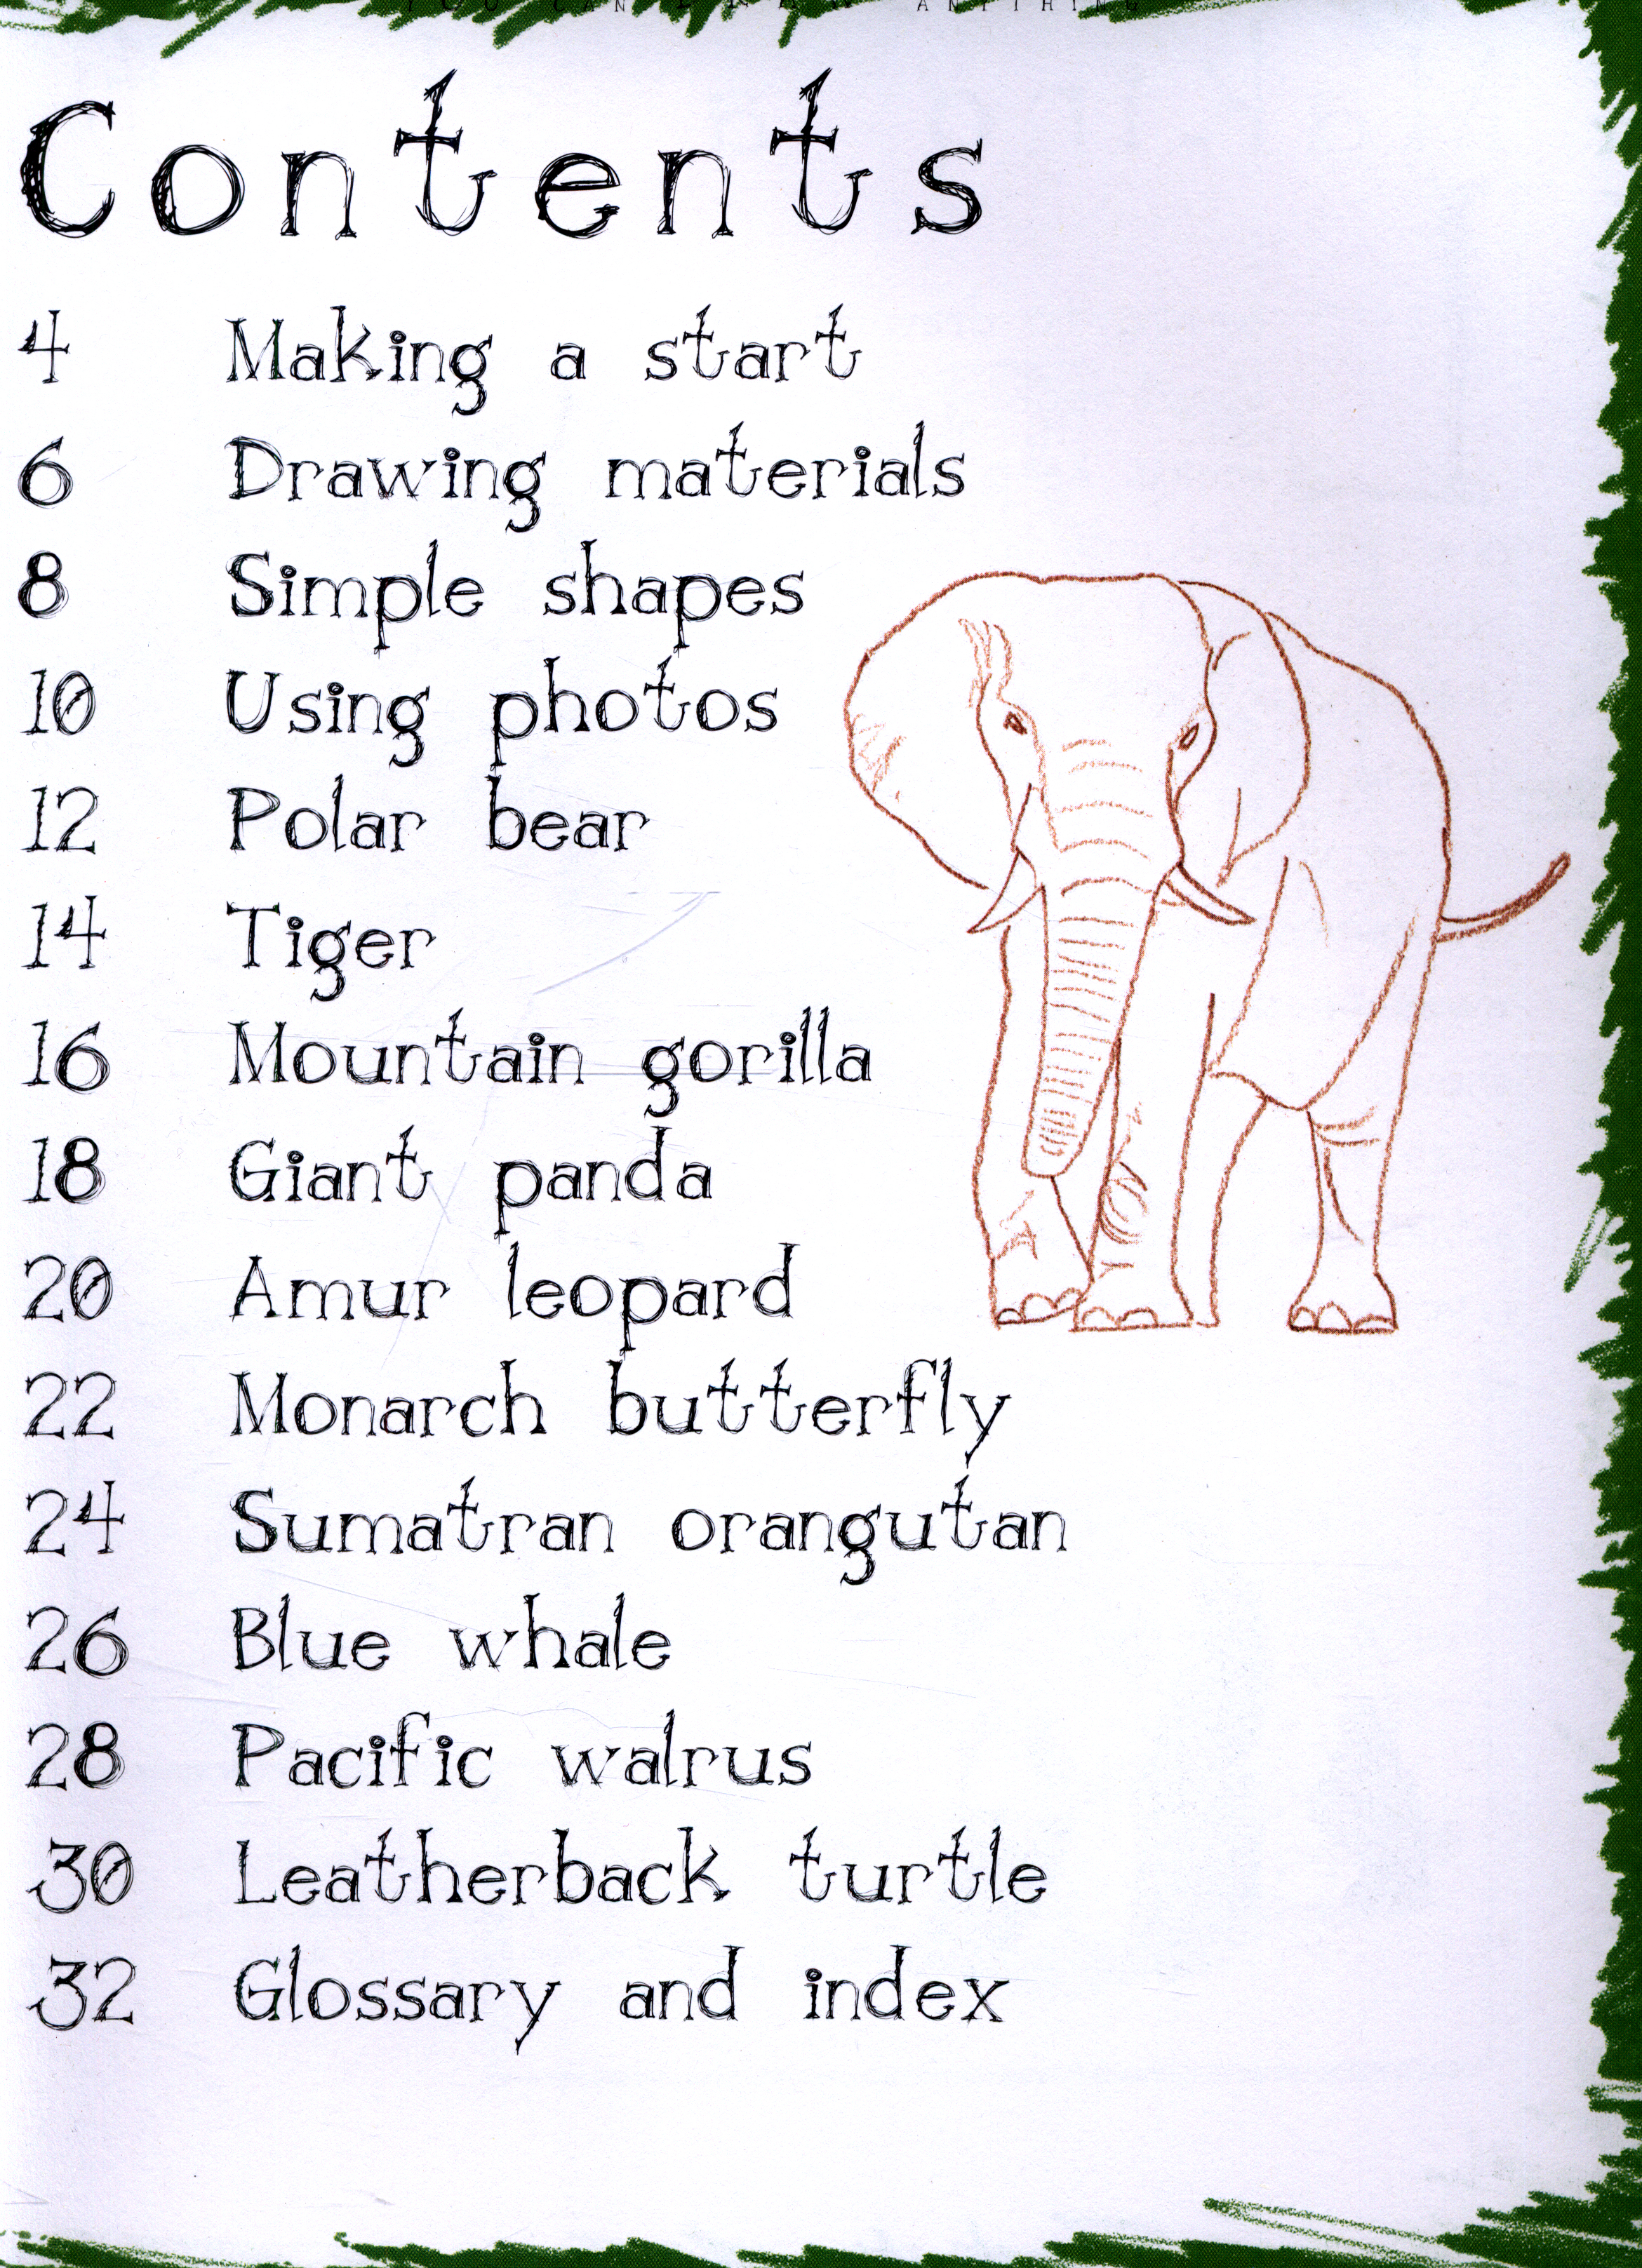 YOU CAN DRAW ANYTHING
Contents
4 Making a start
6 Drawing materials
8 Simple shapes
10 Using photos
12 Polar bear
14 Tiger
16 Mountain gorilla
18 Giant panda
20 Amur leopard
22 Monarch butterfly
24 Sumatran orangutan
26 Blue whale
28 Pacific walrus
30 Leatherback turtle
32 Glossary and index